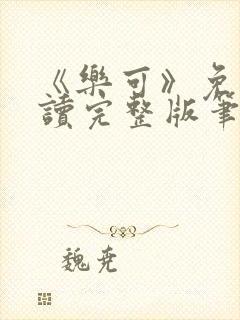 《樂可》免
讀完整版筆
魏尭